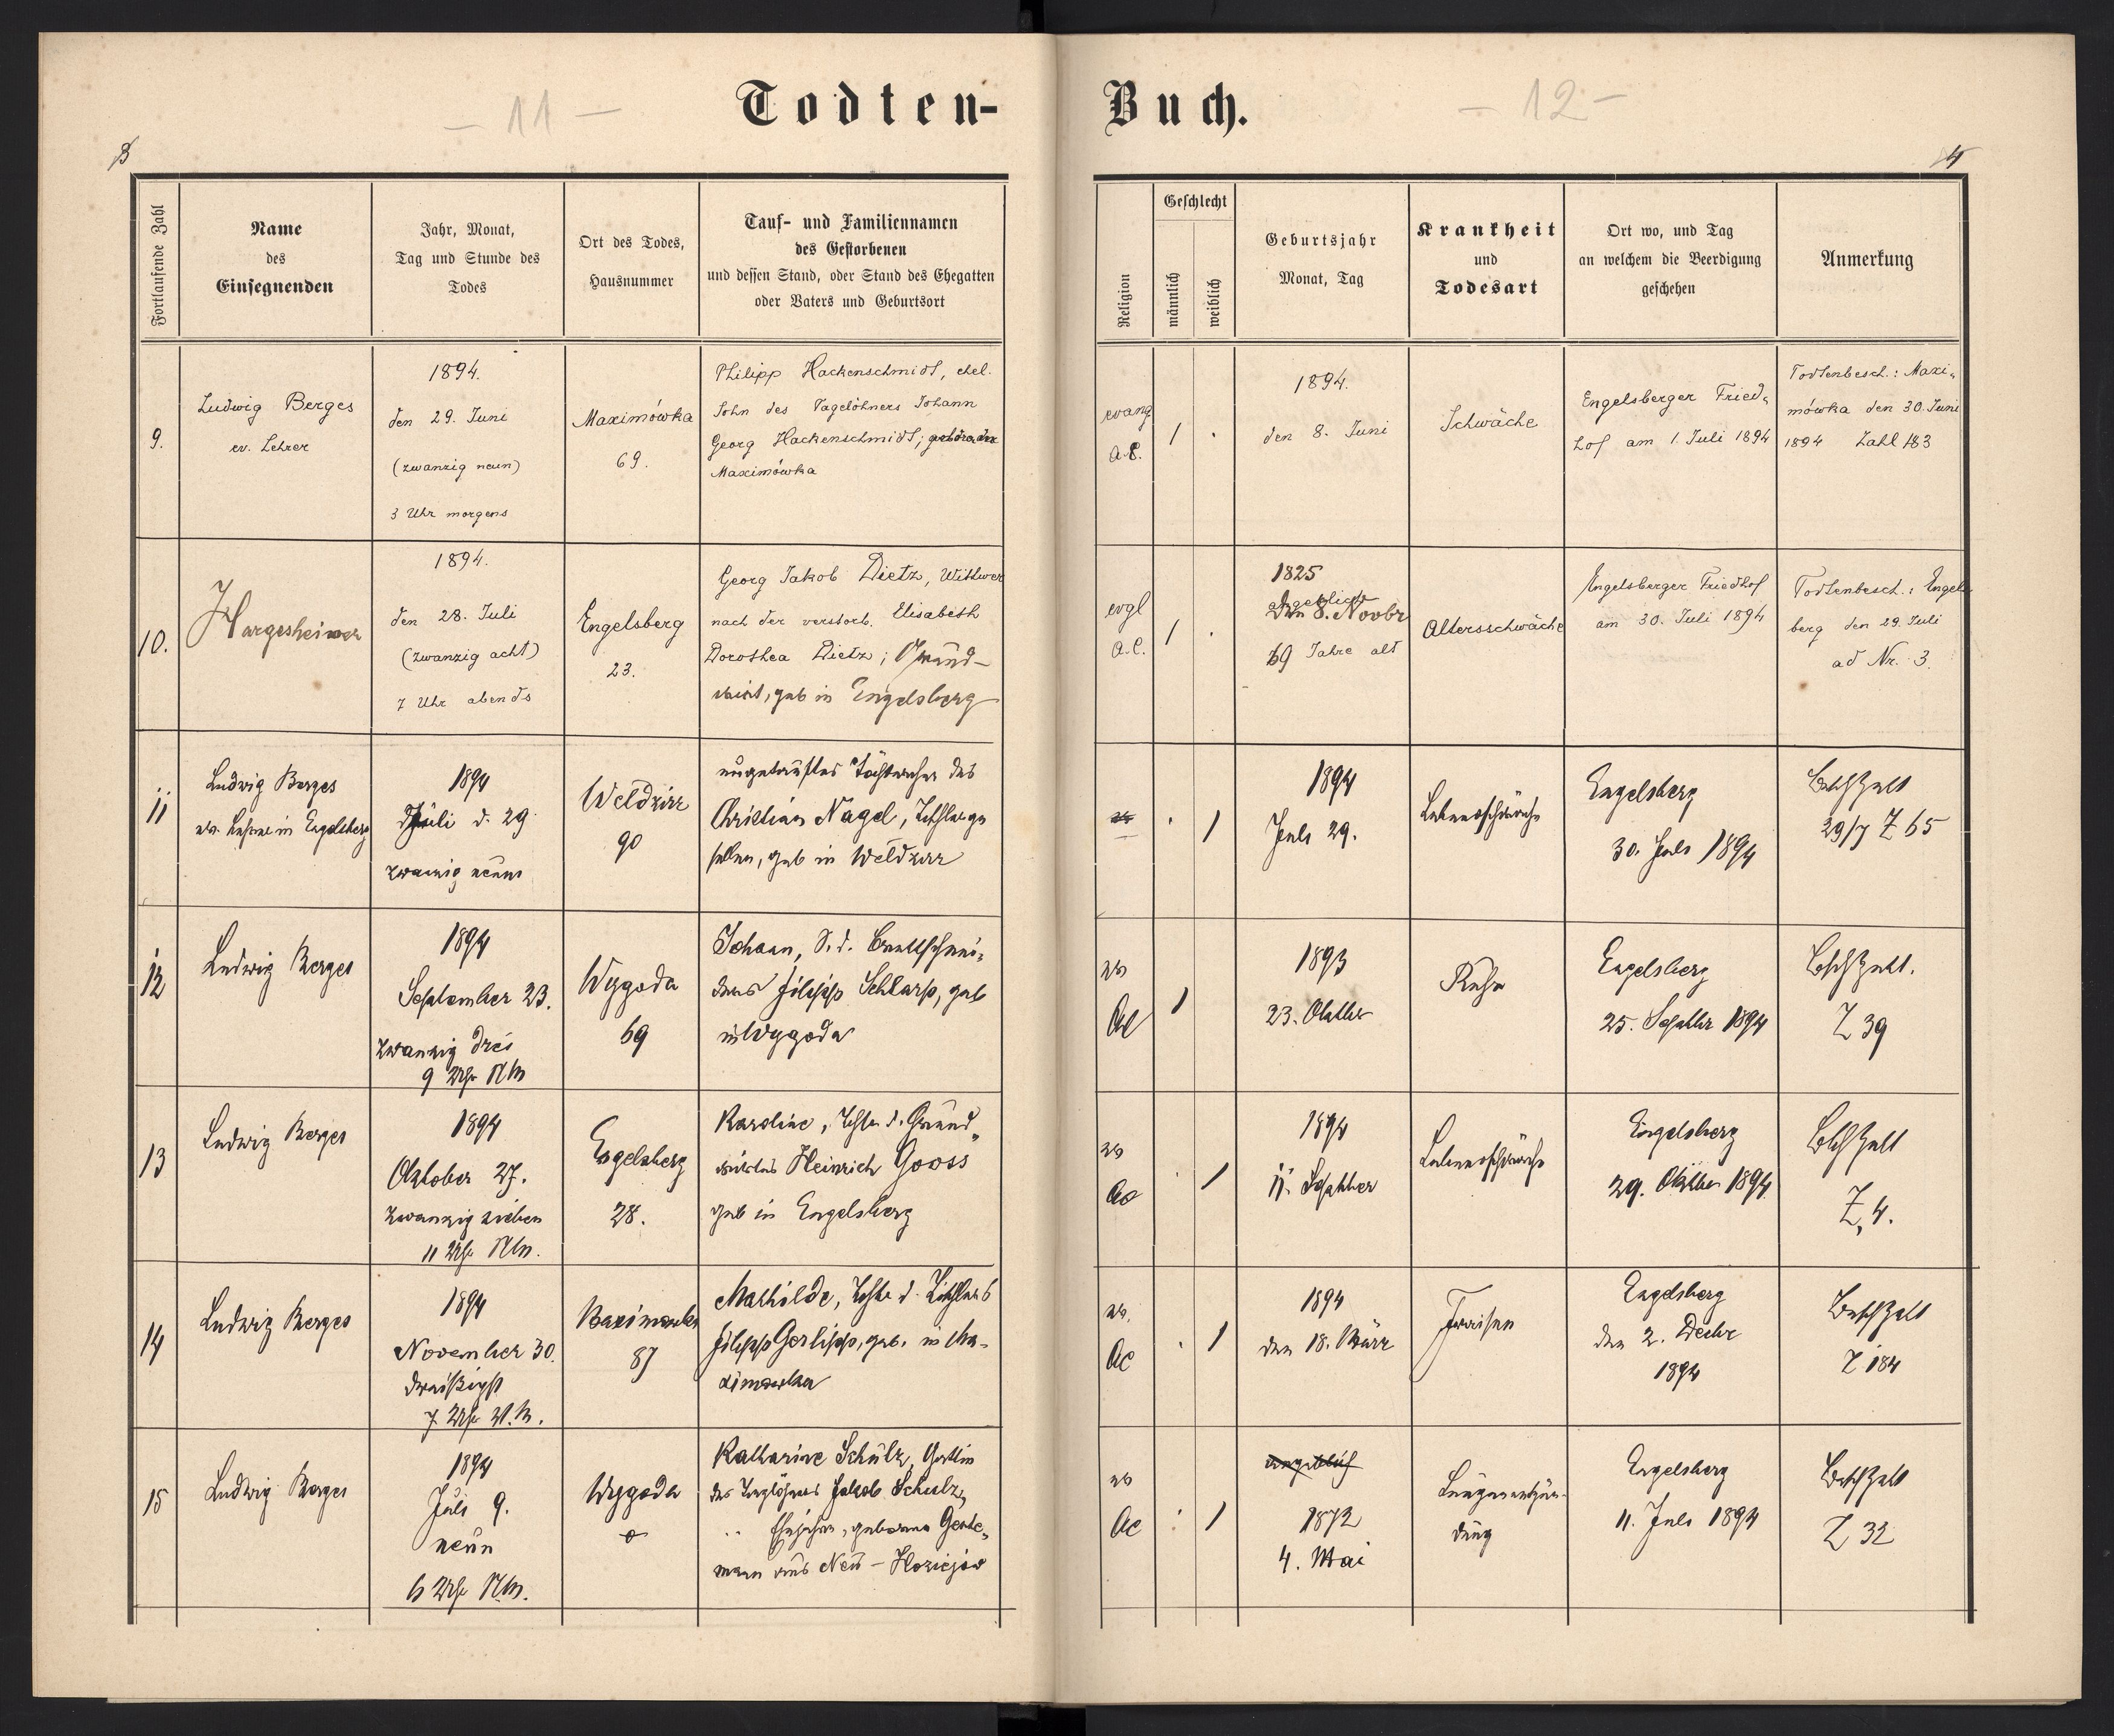 - 11 -
Todten-
Buch.
- 12 -
3
4
Fortlaufende Zahl
Name
des
Einsegnenden
Jahr, Monat,
Tag und Stunde des
Todes
Ort des Todes,
Hausnummer
Tauf- und Familiennamen
des Gestorbenen
und dessen Stand, oder Stand des Ehegatten
oder Vaters und Geburtsort
Religion
Geschlecht
männlich
weiblich
Geburtsjahr
Monat, Tag
Krankheit
und
Todesart
Ort wo, und Tag
an welchem die Beerdigung
geschehen
Anmerkung
9.
Ludwig Berges
ev. Lehrer
1894.
den 29. Juni
(zwanzig neun)
3 Uhr morgens
Maximówka
69.
Philipp Hackenschmidt, ehel.
Sohn des Tagelöhners Johann
Georg Hackenschmidt;
Maximówka
evang
1
1894.
den 8. Juni
Schwäche
Engelsberger Fried-
hof am 1. Juli 1894
Todtenbesch.: Maxi-
mówka den 30. Juni
1894 Zahl 183
10.
Hargesheimer
1894.
den 28. Juli
(zwanzig acht)
7 Uhr abends
Engelsberg
23.
Georg Jakob Dietz, Wittwer
nach der verstorb. Elisabeth
Dorothea Dietz; Grund-
wirt, geb in Engelsberg
evgl
a.C.
1
1825
Den 8. Novbr
69 Jahre alt
Altersschwäche
Engelsberger Friedhof
am 30. Juli 1894
Todtenbesch.: Engels
berg den 29. Juli
ad Nr. 3.
11
Ludwig Berges
ev. Lehrer in Engelsberg
1894
Juli d. 29.
zwanzig neun
Weldzirz
90
ungetauftes Töchterchen des
Christian Nagel, Tischlerge
sellen, geb in Weldzirz
1
1894
Juli 29.
Lebensschwäche
Engelsberg
30. Juli 1894
29/7 Z 65
12
Ludwig Berges
1894
September 23.
zwanzig drei
9 Uhr NM
Wygoda
69
Johann, S. d. Brettschnei-
ders Filipp Schlarp, geb
in Wygoda
ev
AC
1
1893
23. Oktober
Ruhr
Engelsberg
25. Septbr 1894
Z 39
13
Ludwig Berges
1894
Oktober 27.
zwanzig sieben
11 Uhr NM.
Engelsberg
28.
Karoline, Tchtr d. Grund-
wirtes Heinrich Gooss
geb in Engelsberg
ev
AC
1
1894
11. September
Lebensschwäche
Engelsberg
29. Oktober 1894
Z. 4.
14
Ludwig Berges
1894
November 30.
dreißigst
7 Uhr V.M.
Maximowka
87
Mathilde, Tchtr d. Tischlers
Filipp Gerlipp, geb. in Ma-
ximowka
ev.
AC
1
1894
den 18. März
Fraisen
Engelsberg
den 2. Decbr
1894
Z 184
15
Ludwig Berges
1894
Juli 9.
neun
6 Uhr NM.
Wygoda
Katharine Schulz, Gattin
des Taglöhners Jakob Schulz,
geborene Gerde-
mann aus Neu-
ev
AC
1
angeblich
1872
4. Mai
Lungenentzün-
dung
Engelsberg
11. Juli 1894
Z 32